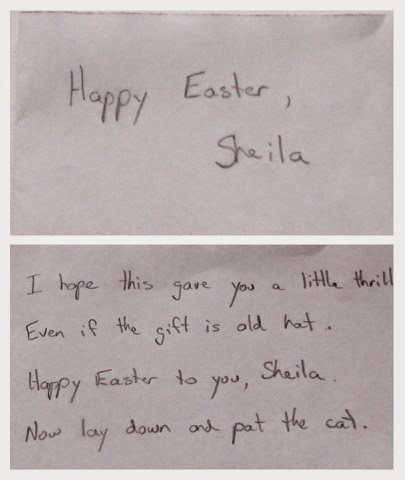 Happy Easter,
Sheila
I hope this gave you a little thrill
Even if the gift is old hat.
Happy Easter to you, Sheila.
Now lay down and pat the cat.